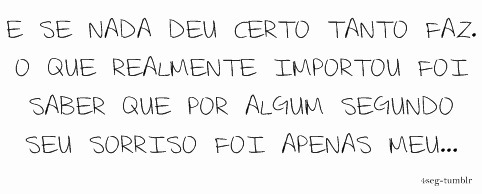 E SE NADA DEU CERTO TANTO FAZ.
O QUE REALMENTE IMPORTOU FOI
SABER QUE POR ALGUM SEGUNDO
SEU SORRISO FOI APENAS MEU...
4seg-tumblr